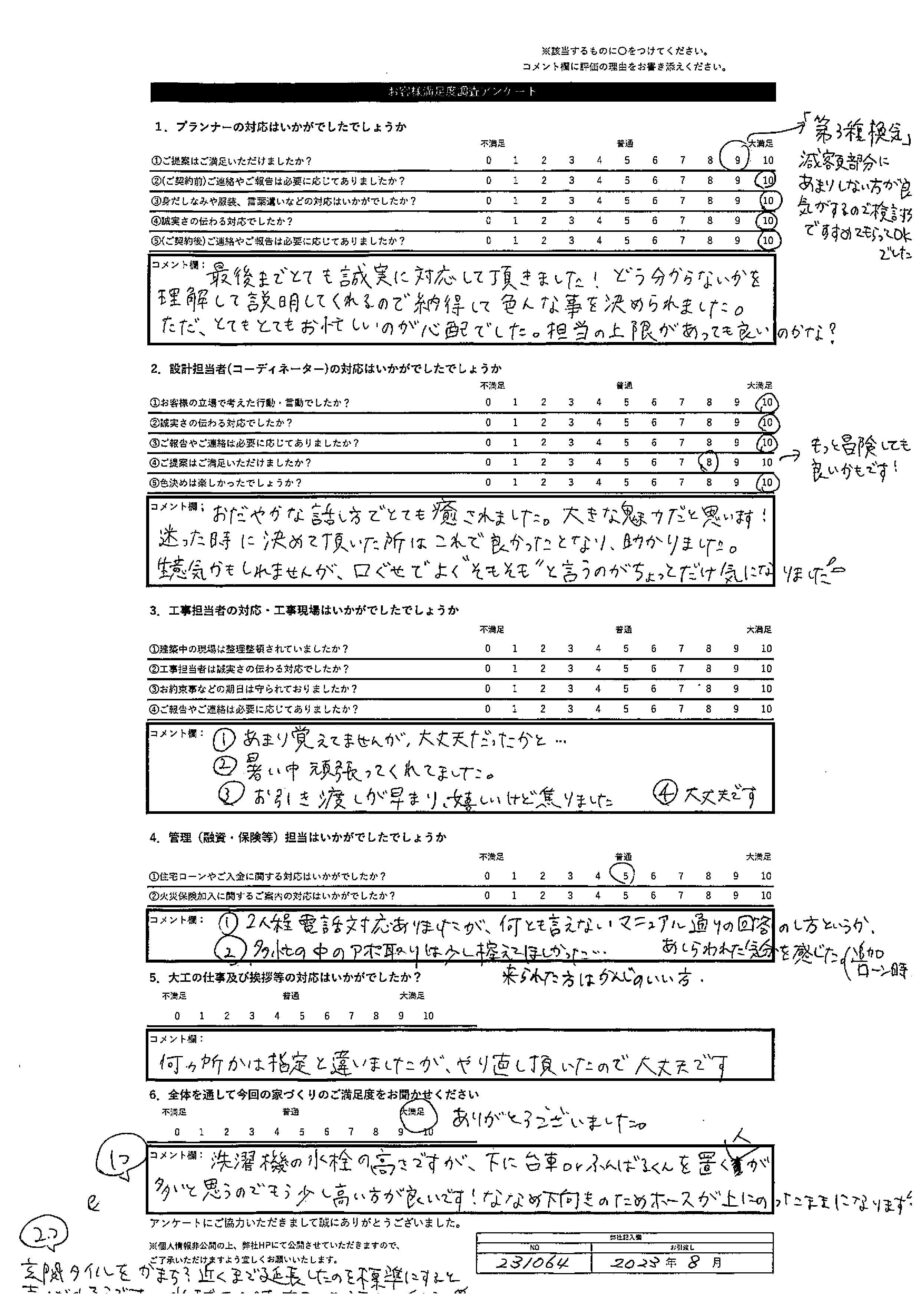 ※該当するものに〇をつけてください。
コメント欄に評価の理由をお書き添えください。
お客様満足度調査アンケート
1．プランナーの対応はいかがでしたでしょうか
不満足 普通 大満足
①ご提案はご満足いただけましたか？ 0 1 2 3 4 5 6 7 8 9 10
②(ご契約前)ご連絡やご報告は必要に応じてありましたか？ 0 1 2 3 4 5 6 7 8 9 10
③身だしなみや服装、言葉遣いなどの対応はいかがでしたか？ 0 1 2 3 4 5 6 7 8 9 10
④誠実さの伝わる対応でしたか？ 0 1 2 3 4 5 6 7 8 9 10
⑤(ご契約後)ご連絡やご報告は必要に応じてありましたか？ 0 1 2 3 4 5 6 7 8 9 10
「第3種換気」
減額部分に
あまりしない方が良い
気がするので検討
ですすめてもらってOK
でした
コメント欄：最後までとても誠実に対応して頂きました！どう分からないかを
理解して説明してくれるので納得して色んな事を決められました。
ただ、とてもとてもお忙しいのが心配でした。担当の上限があっても良いのかな？
2．設計担当者(コーディネーター)の対応はいかがでしたでしょうか
不満足 普通 大満足
①お客様の立場で考えた行動・言動でしたか？ 0 1 2 3 4 5 6 7 8 9 10
②誠実さの伝わる対応でしたか？ 0 1 2 3 4 5 6 7 8 9 10
③ご報告やご連絡は必要に応じてありましたか？ 0 1 2 3 4 5 6 7 8 9 10
④ご提案はご満足いただけましたか？ 0 1 2 3 4 5 6 7 8 9 10
⑤色決めは楽しかったでしょうか？ 0 1 2 3 4 5 6 7 8 9 10
もっと冒険しても
良いかもです！
コメント欄：おだやかな話し方でとても癒されました。大きな魅力だと思います！
迷った時に決めて頂いた所はこれで良かったとなり、助かりました。
生意気かもしれませんが、口ぐせでよく"そもそも"と言うのがちょっとだけ気になりました
3．工事担当者の対応・工事現場はいかがでしたでしょうか
不満足 普通 大満足
①建築中の現場は整理整頓されていましたか？ 0 1 2 3 4 5 6 7 8 9 10
②工事担当者は誠実さの伝わる対応でしたか？ 0 1 2 3 4 5 6 7 8 9 10
③お約束事などの期日は守られておりましたか？ 0 1 2 3 4 5 6 7 8 9 10
④ご報告やご連絡は必要に応じてありましたか？ 0 1 2 3 4 5 6 7 8 9 10
コメント欄：① あまり覚えてませんが、大丈夫だったかと…
② 暑い中頑張ってくれてました。
③ お引き渡しが早まり、嬉しいけど焦りました ④ 大丈夫です
4．管理（融資・保険等）担当はいかがでしたでしょうか
不満足 普通 大満足
①住宅ローンやご入金に関する対応はいかがでしたか？ 0 1 2 3 4 5 6 7 8 9 10
②火災保険加入に関するご案内の対応はいかがでしたか？ 0 1 2 3 4 5 6 7 8 9 10
コメント欄：① 2人程電話対応ありましたが、何とも言えないマニュアル通りの回答の仕方というか、
あしらわれた気分を感じた。(追加ローン時
② 多忙の中のアポ取りは少し控えてほしかった…
来られた方はかんじのいい方．
5．大工の仕事及び挨拶等の対応はいかがでしたか？
不満足 普通 大満足
0 1 2 3 4 5 6 7 8 9 10
コメント欄：
何ヵ所かは指定と違いましたが、やり直し頂いたので大丈夫です
6．全体を通して今回の家づくりのご満足度をお聞かせください
不満足 普通 大満足
0 1 2 3 4 5 6 7 8 9 10
ありがとうございました。
1つ
コメント欄：洗濯機の水栓の高さですが、下に台車orふんばるくんを置く人が
多いと思うのでもう少し高い方が良いです！ななめ下向きのためホースが上にのったままになります
アンケートにご協力いただきまして誠にありがとうございました。
※個人情報非公開の上、弊社HPにて公開させていただきますので、
ご了承いただけますよう宜しくお願いいたします。
弊社記入欄
NO お引渡し
231064 2023年8月
2つ
玄関タイルをがまち？近くまで延長したのを標準にすると